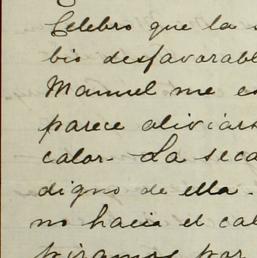 Celebro que la
bio desfavorabl
Manuel me es
parece aliviars
calor. La seca
digno de ella.
no hacia el cal
por